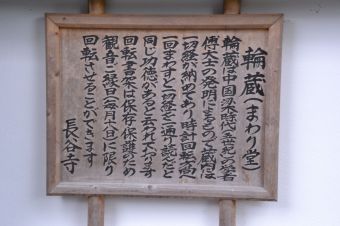 輪蔵(まわり堂)
輪蔵は中国梁時代(五世紀)の学者
傅大士の発明によるもので蔵内には
一切経が納めてあり時計回転に
一回まわすと一切経を一通り読んだと
同じ功徳があると云われております
回転書架は保存・保護のため
観音ご縁日(毎月十八日)に限り
回転させることができます
長谷寺